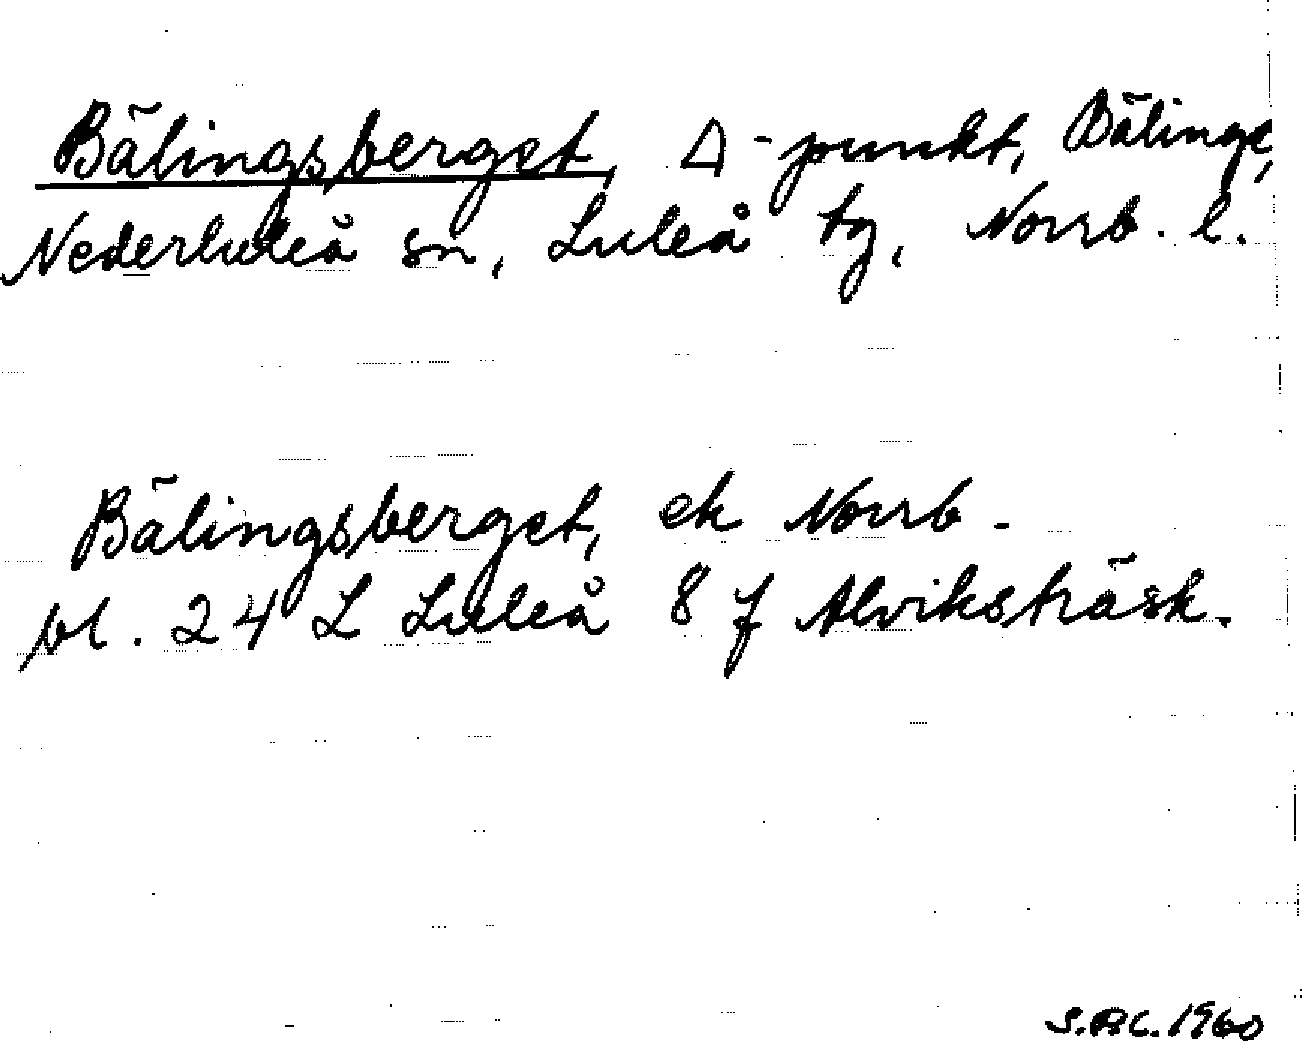 Bälingsberget, Δ-punkt, Bälinge,
Nederluleå sn, Luleå tg, Norrb. l.
Bälingsberget, ek Norrb.
bl. 24 L Luleå 8 f Alviksträsk.
1960